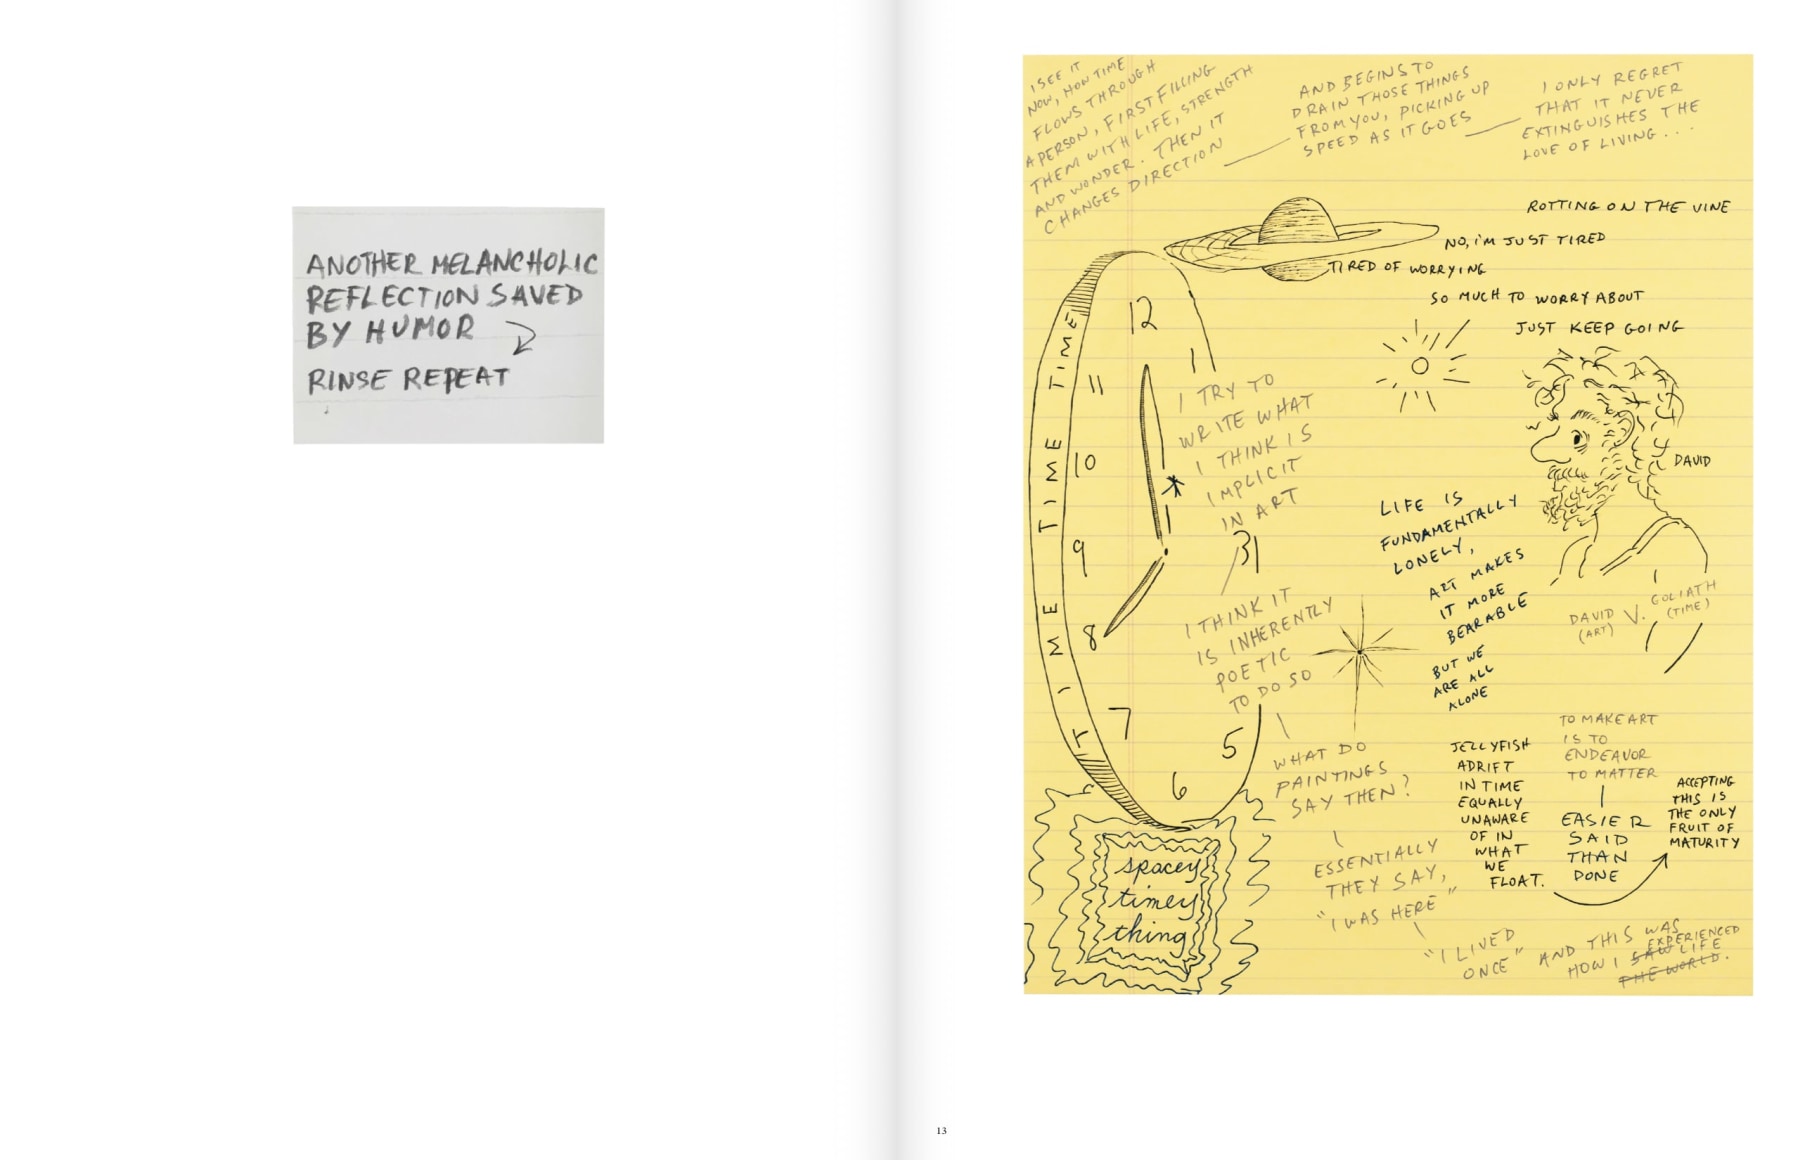 ANOTHER MELANCHOLIC
REFLECTION SAVED
BY HUMOR
RINSE REPEAT
I SEE IT
NOW, HOW TIME
FLOWS THROUGH
A PERSON, FIRST FILLING
THEM WITH LIFE, STRENGTH
AND WONDER. THEN IT
CHANGES DIRECTION
AND BEGINS TO
DRAIN THOSE THINGS
FROM YOU, PICKING UP
SPEED AS IT GOES
I ONLY REGRET
THAT IT NEVER
EXTINGUISHES THE
LOVE OF LIVING...
ROTTING ON THE VINE
NO, I'M JUST TIRED
TIRED OF WORRYING
SO MUCH TO WORRY ABOUT
JUST KEEP GOING
TIME TIME TIME TIME
12
1
11
10
9
8
7
6
5
31
I TRY TO
WRITE WHAT
I THINK IS
IMPLICIT
IN ART
I THINK IT
IS INHERENTLY
POETIC
TO DO SO
WHAT DO
PAINTINGS
SAY THEN?
ESSENTIALLY
THEY SAY,
"I WAS HERE"
"I LIVED
ONCE"
AND THIS WAS
EXPERIENCED
HOW I SAW LIFE
THE WORLD.
DAVID
LIFE IS
FUNDAMENTALLY
LONELY,
ART MAKES
IT MORE
BEARABLE
BUT WE
ARE ALL
ALONE
DAVID V. GOLIATH
(ART) (TIME)
JELLYFISH
ADRIFT
IN TIME
EQUALLY
UNAWARE
OF IN
WHAT
WE
FLOAT.
TO MAKE ART
IS TO
ENDEAVOR
TO MATTER
EASIER
SAID
THAN
DONE
ACCEPTING
THIS IS
THE ONLY
FRUIT OF
MATURITY
spacey
timey
thing
13